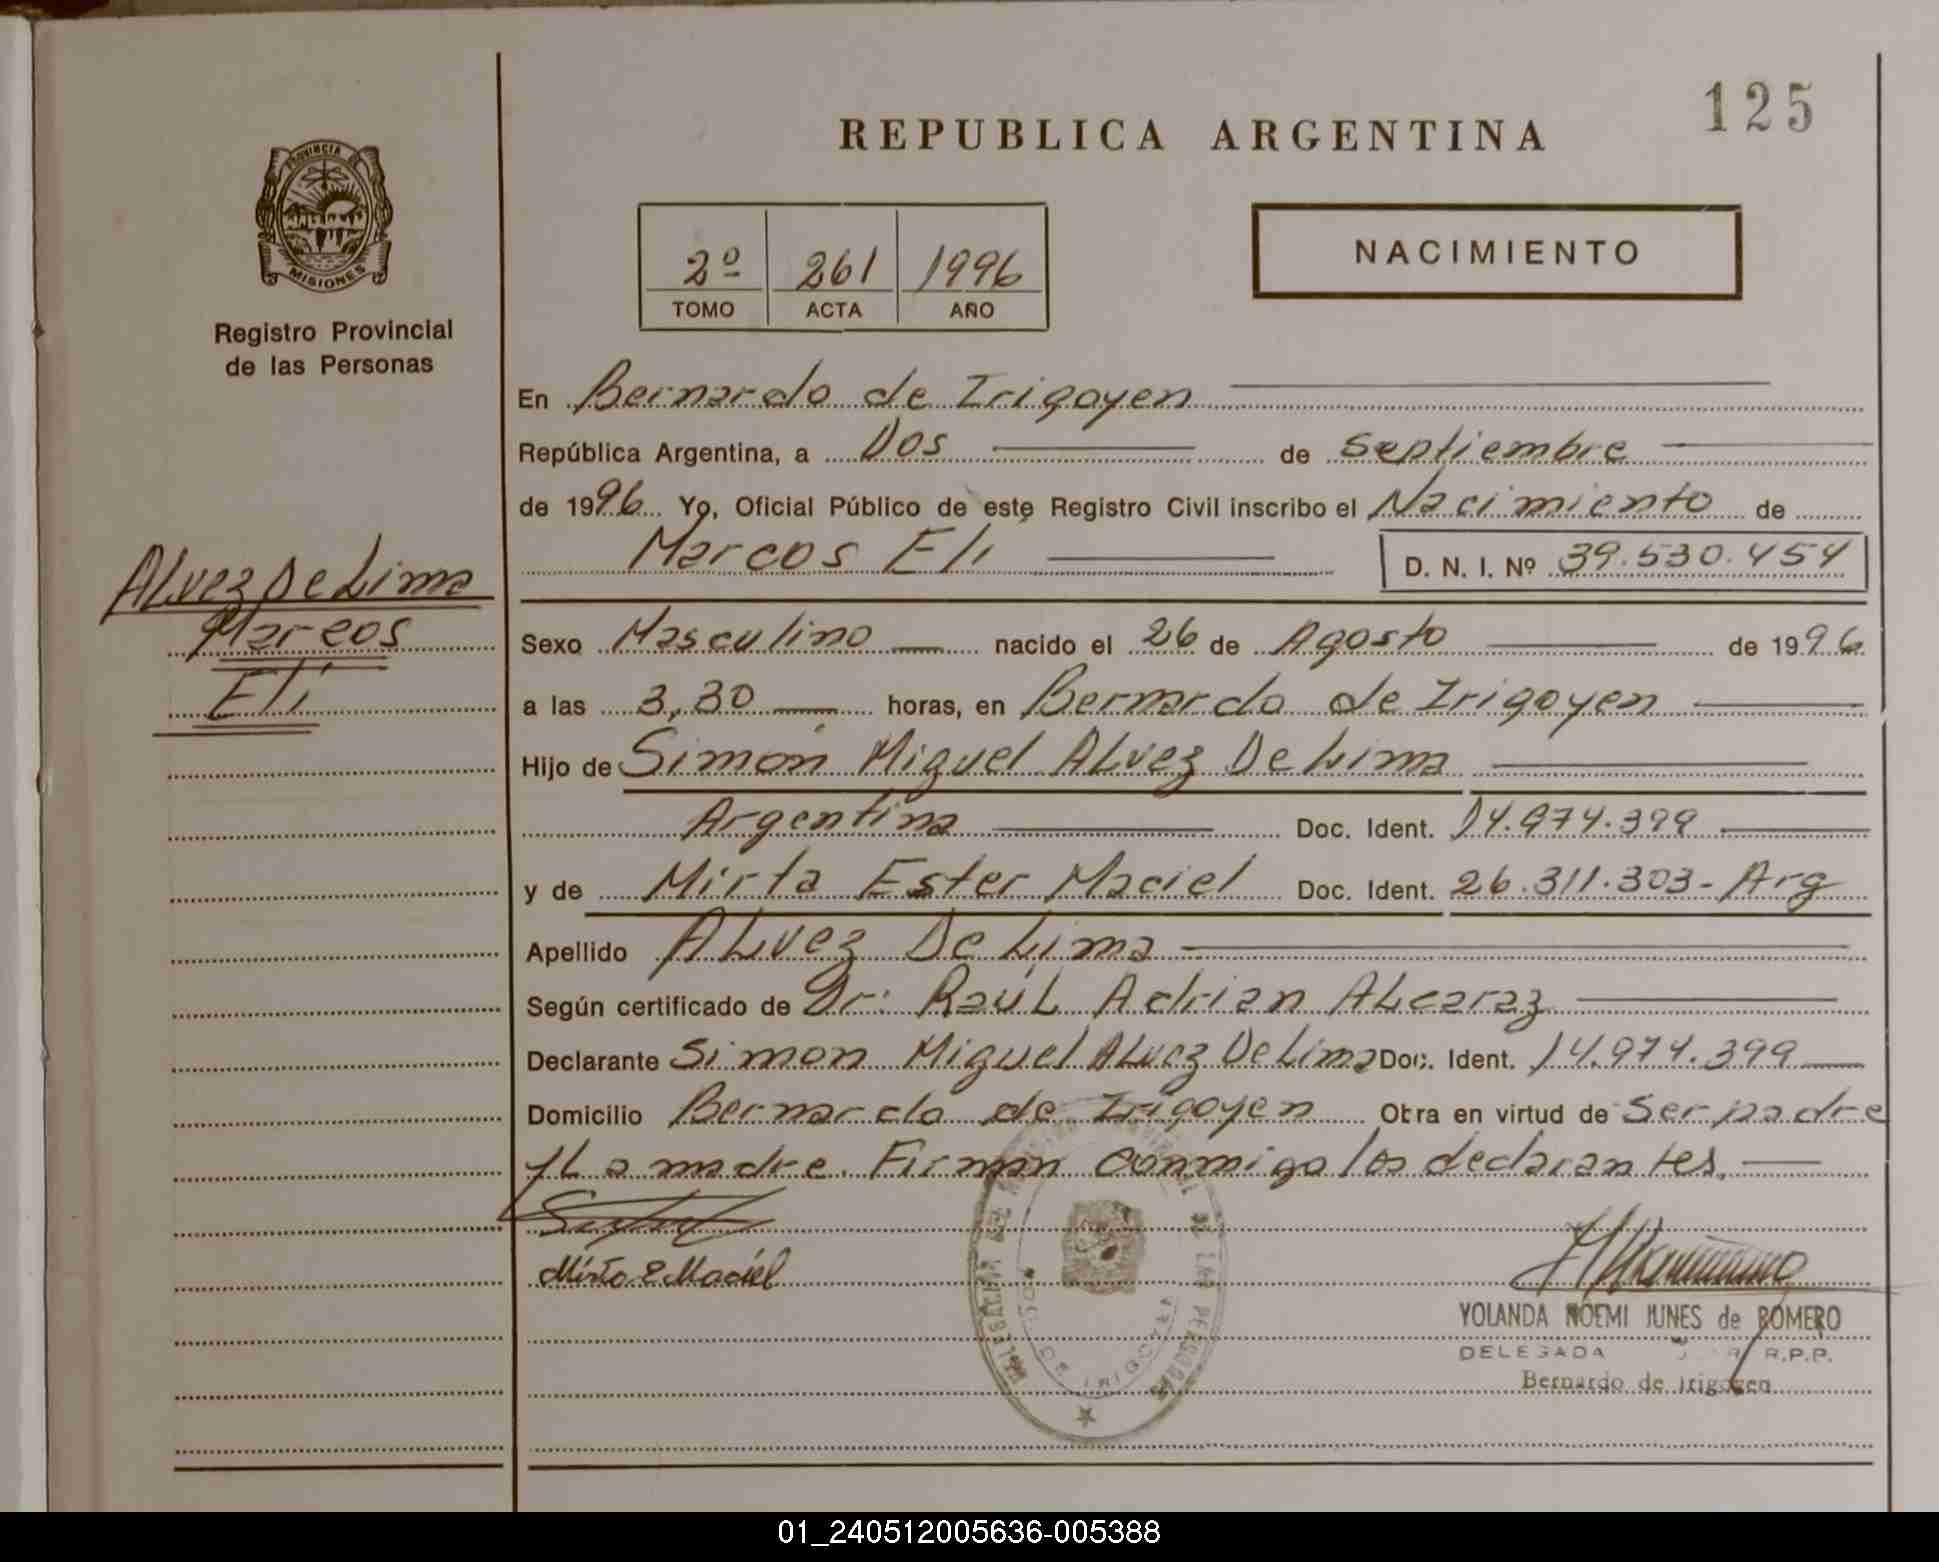 125
REPUBLICA ARGENTINA
PROVINCIA DE
MISIONES
Registro Provincial
de las Personas
NACIMIENTO
2º 261 1996
TOMO ACTA AÑO
En Bernardo de Irigoyen
República Argentina, a Dos de Septiembre
de 1996. Yo, Oficial Público de este Registro Civil inscribo el Nacimiento de
Marcos Eli D. N. I. Nº 39.530.454
Alvez De Lima
Marcos
Eli
Sexo Masculino nacido el 26 de Agosto de 1996
a las 3,30 horas, en Bernardo de Irigoyen
Hijo de Simón Miguel Alvez De Lima
Argentina Doc. Ident. 14.974.399
y de Mirta Ester Maciel Doc. Ident. 26.311.303- Arg
Apellido Alvez De Lima
Según certificado de Dr: Raúl Adrian Alcaraz
Declarante Simon Miguel Alvez De Lima Doc. Ident. 14.974.399
Domicilio Bernardo de Irigoyen Obra en virtud de Ser padre
y La madre. Firman conmigo los declarantes.
Mirta E Maciel
YOLANDA NOEMI JUNES de ROMERO
DELEGADA R.P.P.
Bernardo de Irigoyen
01_240512005636-005388